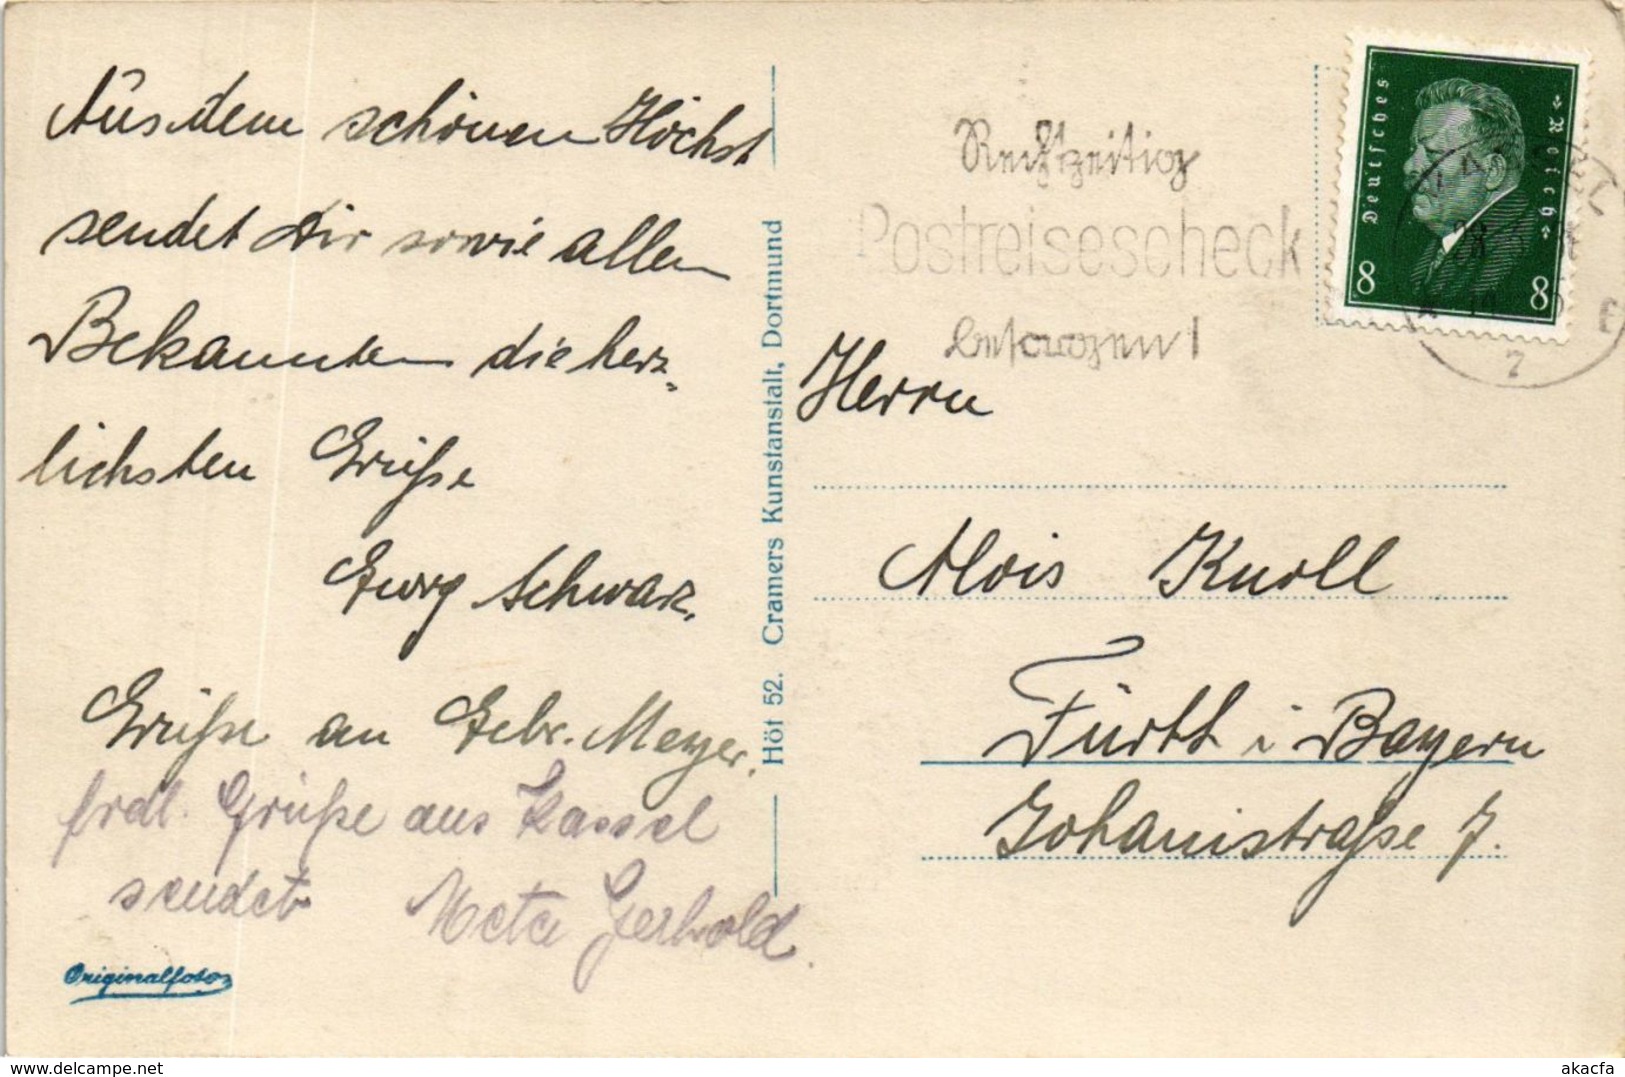 Aus dem schönen Höchst
sendet Dir sowie allen
Bekannten die herz-
lichsten Grüße
Georg Schwarz.
Grüße an Gebr. Meyer.
frdl. Grüße aus Kassel
sendet Meta Gerhold.
Originalfoto
Höt 52. Cramers Kunstanstalt, Dortmund
Rechtzeitig
Postreisescheck
besorgen!
Deutsches
Reich
8 8
28
7
Herrn
Alois Knoll
Fürth i Bayern
Johanisstraße 7.
akpool
akacfa
delcampe.net